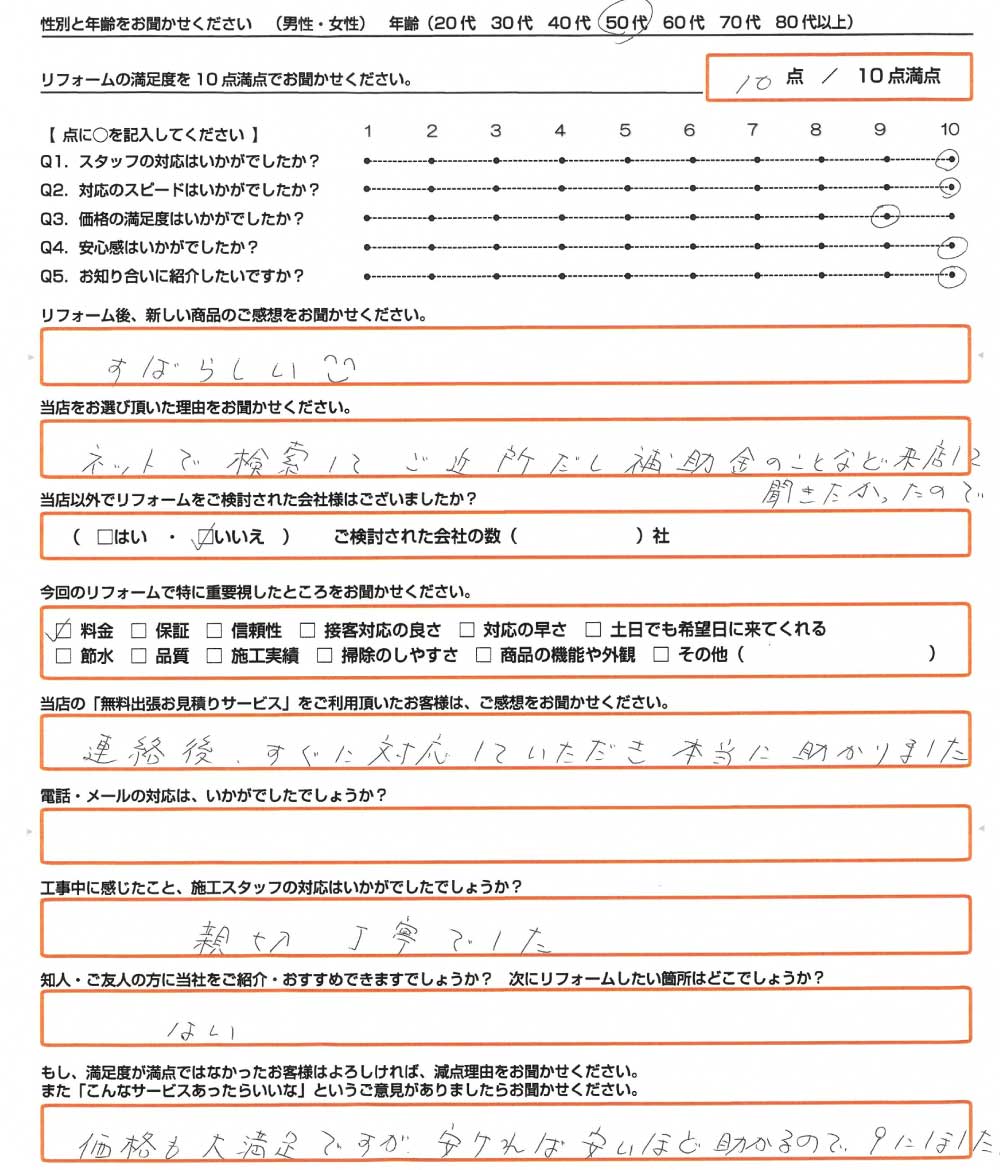 性別と年齢をお聞かせください （男性・女性） 年齢（20代 30代 40代 50代 60代 70代 80代以上）
リフォームの満足度を10点満点でお聞かせください。 10 点 ／ 10点満点
【 点に○を記入してください 】 1 2 3 4 5 6 7 8 9 10
Q1. スタッフの対応はいかがでしたか？
Q2. 対応のスピードはいかがでしたか？
Q3. 価格の満足度はいかがでしたか？
Q4. 安心感はいかがでしたか？
Q5. お知り合いに紹介したいですか？
リフォーム後、新しい商品のご感想をお聞かせください。
すばらしい
当店をお選び頂いた理由をお聞かせください。
ネットで検索して ご近所だし 補助金のことなど来店に
聞きたかったので
当店以外でリフォームをご検討された会社様はございましたか？
（ □はい ・ ☑いいえ ） ご検討された会社の数（ ）社
今回のリフォームで特に重要視したところをお聞かせください。
☑ 料金 □ 保証 □ 信頼性 □ 接客対応の良さ □ 対応の早さ □ 土日でも希望日に来てくれる
□ 節水 □ 品質 □ 施工実績 □ 掃除のしやすさ □ 商品の機能や外観 □ その他（ ）
当店の「無料出張お見積りサービス」をご利用頂いたお客様は、ご感想をお聞かせください。
連絡後、すぐに対応していただき 本当に助かりました
電話・メールの対応は、いかがでしたでしょうか？
工事中に感じたこと、施工スタッフの対応はいかがでしたでしょうか？
親切 丁寧でした
知人・ご友人の方に当社をご紹介・おすすめできますでしょうか？ 次にリフォームしたい箇所はどこでしょうか？
はい
もし、満足度が満点ではなかったお客様はよろしければ、減点理由をお聞かせください。
また「こんなサービスあったらいいな」というご意見がありましたらお聞かせください。
価格も大満足ですが、安ければ安いほど助かるので、9にしました